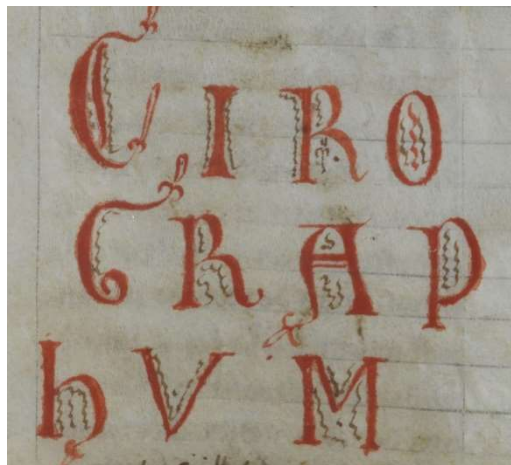 CIRO
GRAP
hVM